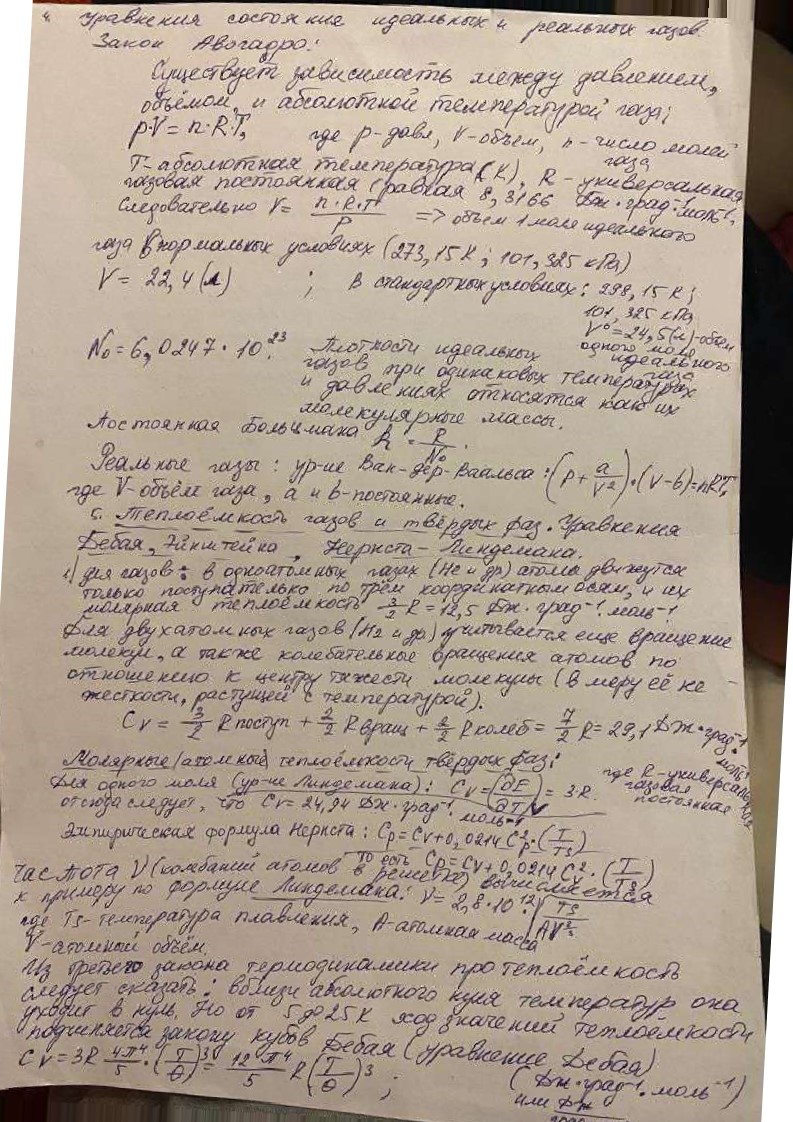 4. Уравнения состояния идеальных и реальных газов.
Закон Авогадро:
Существует зависимость между давлением,
объёмом, и абсолютной температурой газа;
p·V = n·R·T, где p-давл, V-объем, n-число молей
газа
T-абсолютная температура (К), R-универсальная
газовая постоянная (равная 8,3166 Дж·град⁻¹моль⁻¹,
следовательно V = n·R·T/P => объем 1 моля идеального
газа в нормальных условиях (273,15 К; 101,325 кПа)
V = 22,4 (л) ; в стандартных условиях: 298,15 К;
101,325 кПа,
V⁰ = 24,5 (л)-объем
одного моля
идеального
газа
N₀ = 6,0247·10²³. Плотности идеальных
газов при одинаковых температурах
и давлениях относятся как их
молекулярные массы.
Постоянная Больцмана k = R/N₀.
Реальные газы: ур-ие Ван-дер-Ваальса: (P + a/V²)·(V-b) = nRT,
где V-объём газа, a и b-постоянные.
5. Теплоёмкость газов и твёрдых фаз. Уравнения
Дебая, Эйнштейна, Нернста-Линдемана.
1) для газов: в одноатомных газах (He и др) атомы движутся
только поступательно по трём координатным осям, и их
молярная теплоёмкость 3/2 R = 12,5 Дж·град⁻¹·моль⁻¹.
Для двухатомных газов (H₂ и др) учитывается еще вращение
молекул, а также колебательные вращения атомов по
отношению к центру тяжести молекулы (в меру её не-
жесткости, растущей с температурой).
Cv = 3/2 R поступ + 2/2 R вращ + 2/2 R колеб = 7/2 R = 29,1 Дж·град⁻¹·
моль⁻¹
Молярные (атомные) теплоёмкости твёрдых фаз:
Для одного моля (ур-ие Линдемана): Cv = (∂E/∂T)V = 3R. где R-универсальная
газовая
постоянная
отсюда следует, что Cv = 24,94 Дж·град⁻¹·моль⁻¹
Эмпирическая формула Нернста: Cp = Cv + 0,0214 C²p·(T/Ts)
то есть Cp = Cv + 0,0214 C²v·(T/Ts)
Частота ν (колебаний атомов в решётке) вычисляется
к примеру по формуле Линдемана: ν = 2,8·10¹²√(Ts/AV^⅔)
где Ts-температура плавления, A-атомная масса
V-атомный объём.
Из третьего закона термодинамики про теплоёмкость
следует сказать: вблизи абсолютного нуля температур она
уходит в нуль. Но от 5 до 25К ход значений теплоёмкости
подчиняется закону кубов Дебая (уравнение Дебая)
Cv = 3R 4π⁴/5·(T/θ)³ = 12π⁴/5 R(T/θ)³; (Дж·град⁻¹·моль⁻¹)
или Дж